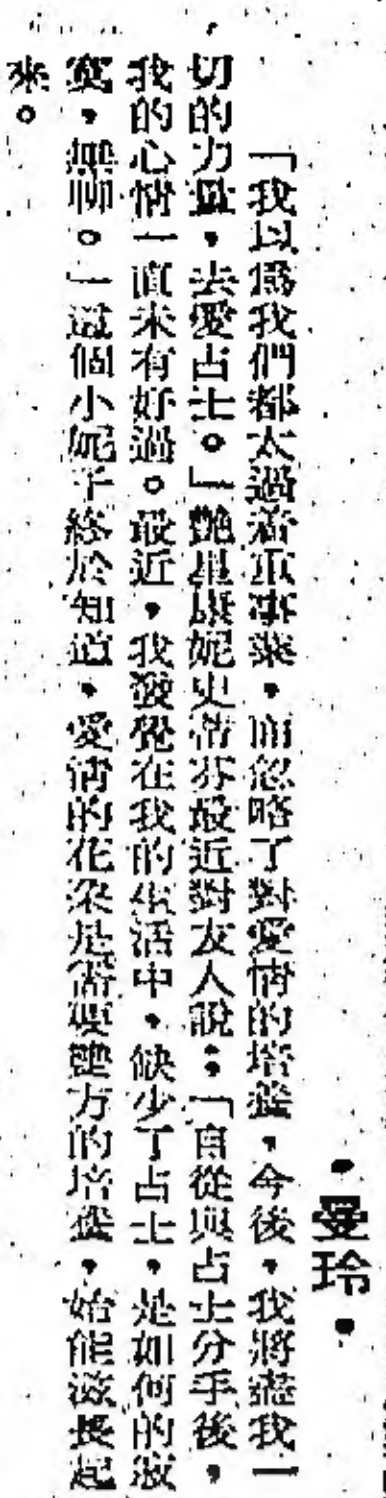 •曼玲•
「我以爲我們都太過着重事業，而忽略了對愛情的培養，今後，我將盡我一
切的力量，去愛占士。」艷星康妮史蒂芬最近對友人說：「自從與占士分手後，
我的心情一直未有好過。最近，我發覺在我的生活中，缺少了占士，是如何的寂
寞，無聊。」這個小妮子終於知道，愛情的花朶是需要雙方的培養，始能滋長起
來。